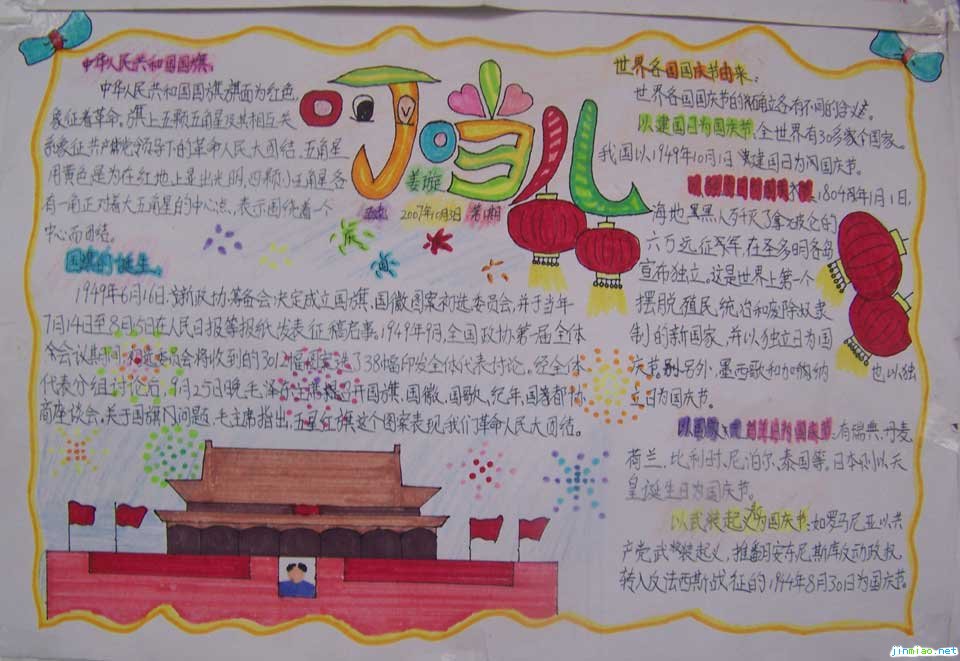 中华人民共和国国旗
中华人民共和国国旗旗面为红色,
象征着革命。旗上五颗五角星及其相互关
系象征共产党领导下的革命人民大团结。五角星
用黄色是为在红地上显出光明,四颗小五角星各
有一角正对着大五角星的中心点,表示围绕着一个
中心而团结。
国旗的诞生
1949年6月16日,新政协筹备会决定成立国旗,国徽图案初选委员会,并于当年
7月14日至8月15日在人民日报等报纸发表征稿启事。1949年9月,全国政协第一届全体
会议期间,初选委员会将收到的3012幅图案选了38幅印发全体代表讨论。经全体
代表分组讨论后,9月25日晚,毛泽东主席召开国旗,国徽,国歌,纪年,国著都协
商座谈会。关于国旗问题,毛主席指出,五星红旗这个图案表现我们革命人民大团结。
叮当儿
姜璇
2007年10月3日 第1期
世界各国国庆节由来:
世界各国国庆节的确立各有不同的含义。
以建国日为国庆节,全世界有30多家个国家。
我国以1949年10月1日为建国日为国庆节。
1804年1月1日,
海地黑人歼灭了拿破仑的
六万远征军,在圣多明各岛
宣布独立。这是世界上第一个
摆脱殖民统治和废除奴隶
制的新国家,并以独立日为国
庆节。另外,墨西歌和加纳
也以独
立日为国庆节。
有瑞典,丹麦,
荷兰,比利时,尼泊尔,泰国等,日本则以天
皇诞生日为国庆节。
以武装起义为国庆节:如罗马尼亚以共
产党武装起义,推翻安东尼斯库反动政权,
转入反法西斯战征的1944年8月30日为国庆节。
jinmiao.net